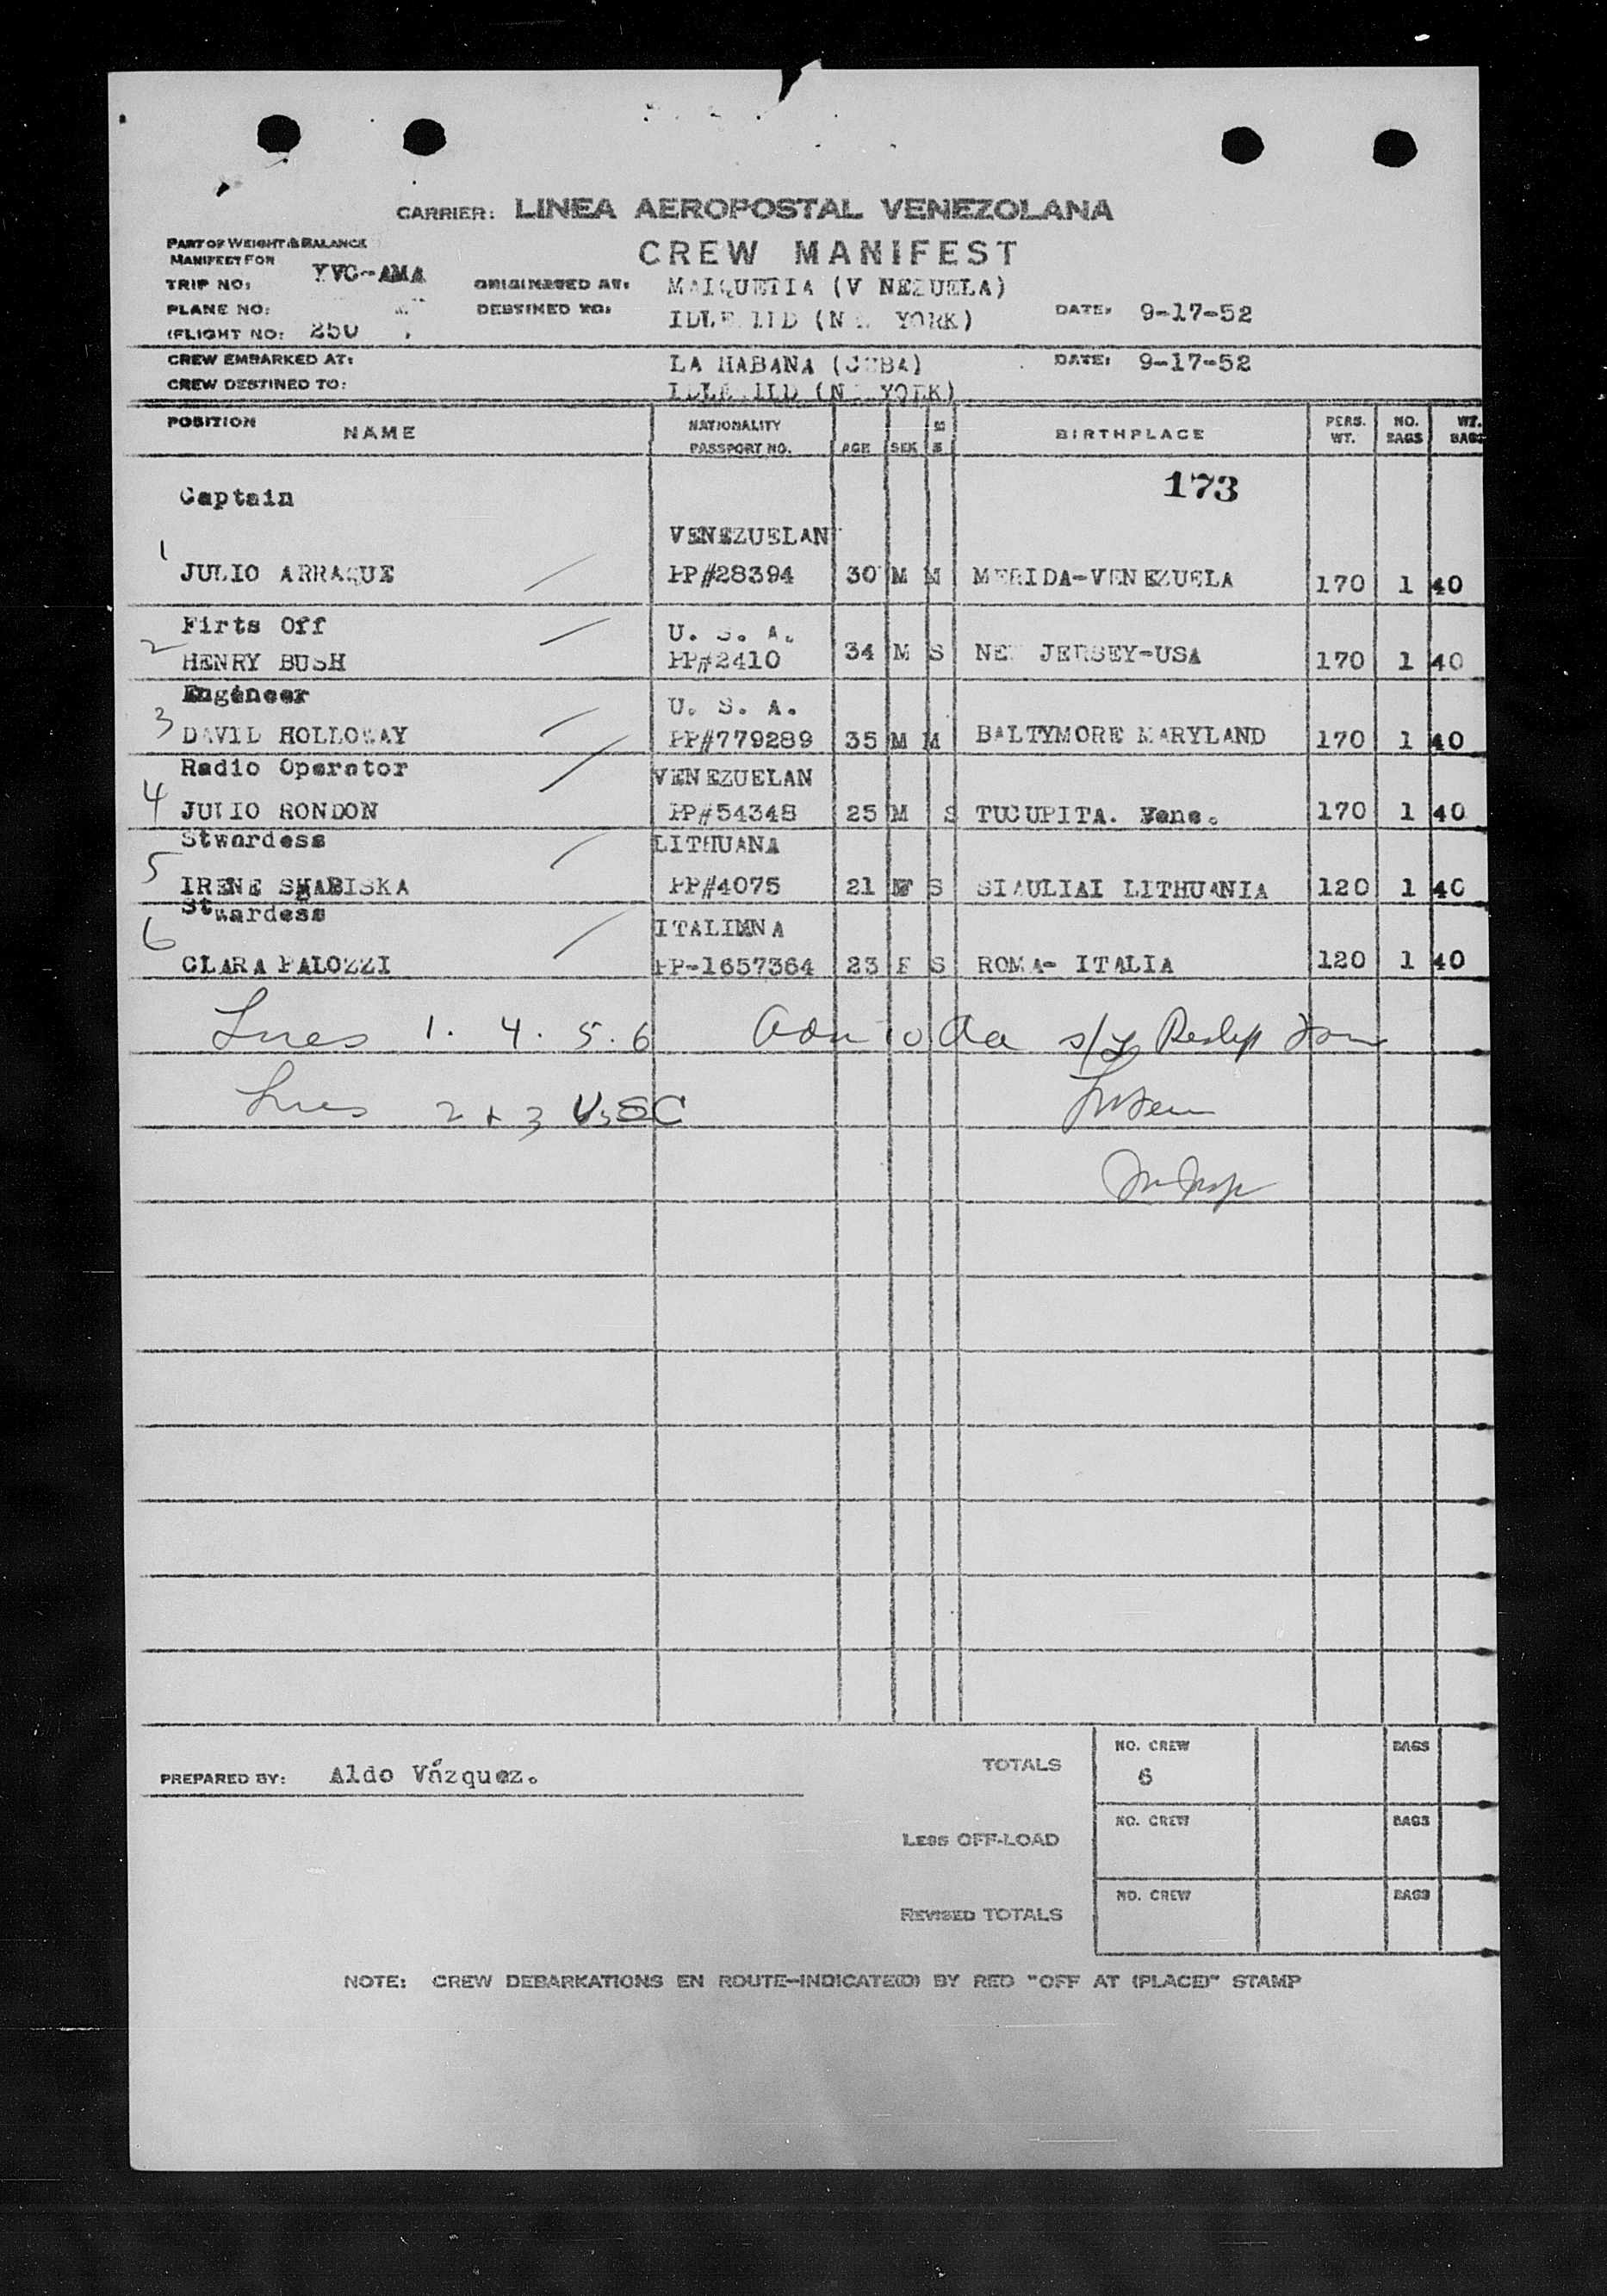 CARRIER: LINEA AEROPOSTAL VENEZOLANA
PART OF WEIGHT & BALANCE
MANIFEST FOR
CREW MANIFEST
TRIP NO: YVC-AMA ORIGINATED AT: MAIQUETIA (V NEZUELA)
PLANE NO: DESTINED TO: IDLE ILD (N YORK) DATE: 9-17-52
(FLIGHT NO: 250
CREW EMBARKED AT: LA HABANA (CUBA) DATE: 9-17-52
CREW DESTINED TO: IDLE ILD (N YORK)
POSITION NAME NATIONALITY PASSPORT NO. AGE SEX M S BIRTHPLACE PERS. WT. NO. BAGS WT. BAGS
173
Captain
VENEZUELAN
1 JULIO ARRAQUE PP#28394 30 M M MERIDA-VENEZUELA 170 1 40
Firts Off U. S. A.
2 HENRY BUSH PP#2410 34 M S NEW JERSEY-USA 170 1 40
Engeneer U. S. A.
3 DAVID HOLLOWAY PP#779289 35 M M BALTYMORE MARYLAND 170 1 40
Radio Operator VENEZUELAN
4 JULIO RONDON PP#54348 25 M S TUCUPITA. Vene. 170 1 40
Stwardess LITHUANA
5 IRENE SHABISKA PP#4075 21 F S SIAULIAI LITHUANIA 120 1 40
Stwardess ITALIANA
6 CLARA PALOZZI PP-1657364 23 F S ROMA- ITALIA 120 1 40
Lines 1. 4. 5. 6
Lines 2 + 3 USC
PREPARED BY: Aldo Vázquez.
TOTALS NO. CREW 6 BAGS
LESS OFF-LOAD NO. CREW BAGS
REVISED TOTALS NO. CREW BAGS
NOTE: CREW DEBARKATIONS EN ROUTE-INDICATE(D) BY RED "OFF AT (PLACE)" STAMP